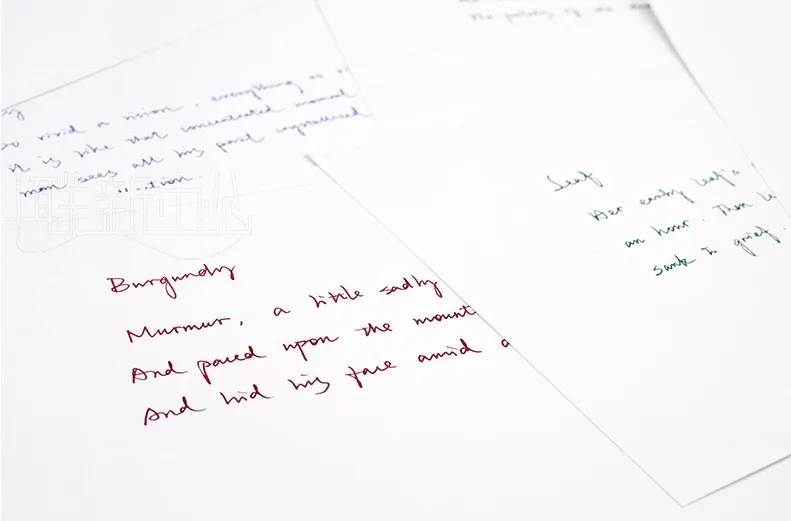 So vivid a vision, everything so
it is like that concentrated moment
man sees all his past crystallised
tion.
The of the
Burgundy
Murmur, a little sadly
And paced upon the mount
And hid his face amid a
Leaf
Her early leaf's
an hour. Then le
sank to grief.